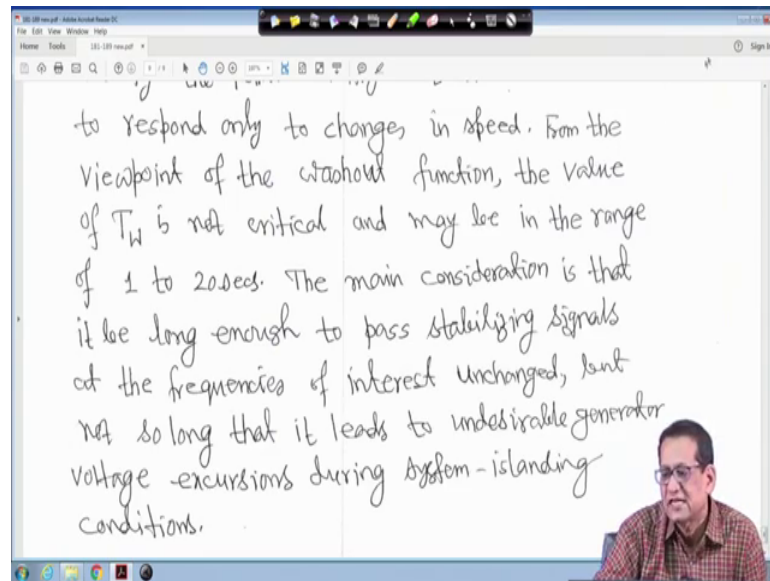 181-189 new.pdf - Adobe Acrobat Reader DC
File Edit View Window Help
Home Tools 181-189 new.pdf × Sign In
to respond only to changes in speed. From the
viewpoint of the washout function, the value
of Tw is not critical and may be in the range
of 1 to 20 secs. The main consideration is that
it be long enough to pass stabilizing signals
at the frequencies of interest unchanged, but
not so long that it leads to undesirable generator
voltage excursions during system-islanding
conditions.